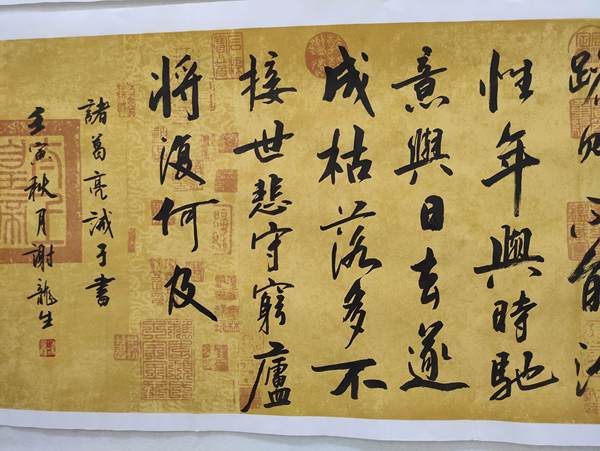 躁则不能
性年與時馳
意與日去遂
成枯落多不
接世悲守窮廬
将復何及
諸葛亮誡子書
壬寅秋月謝龍生